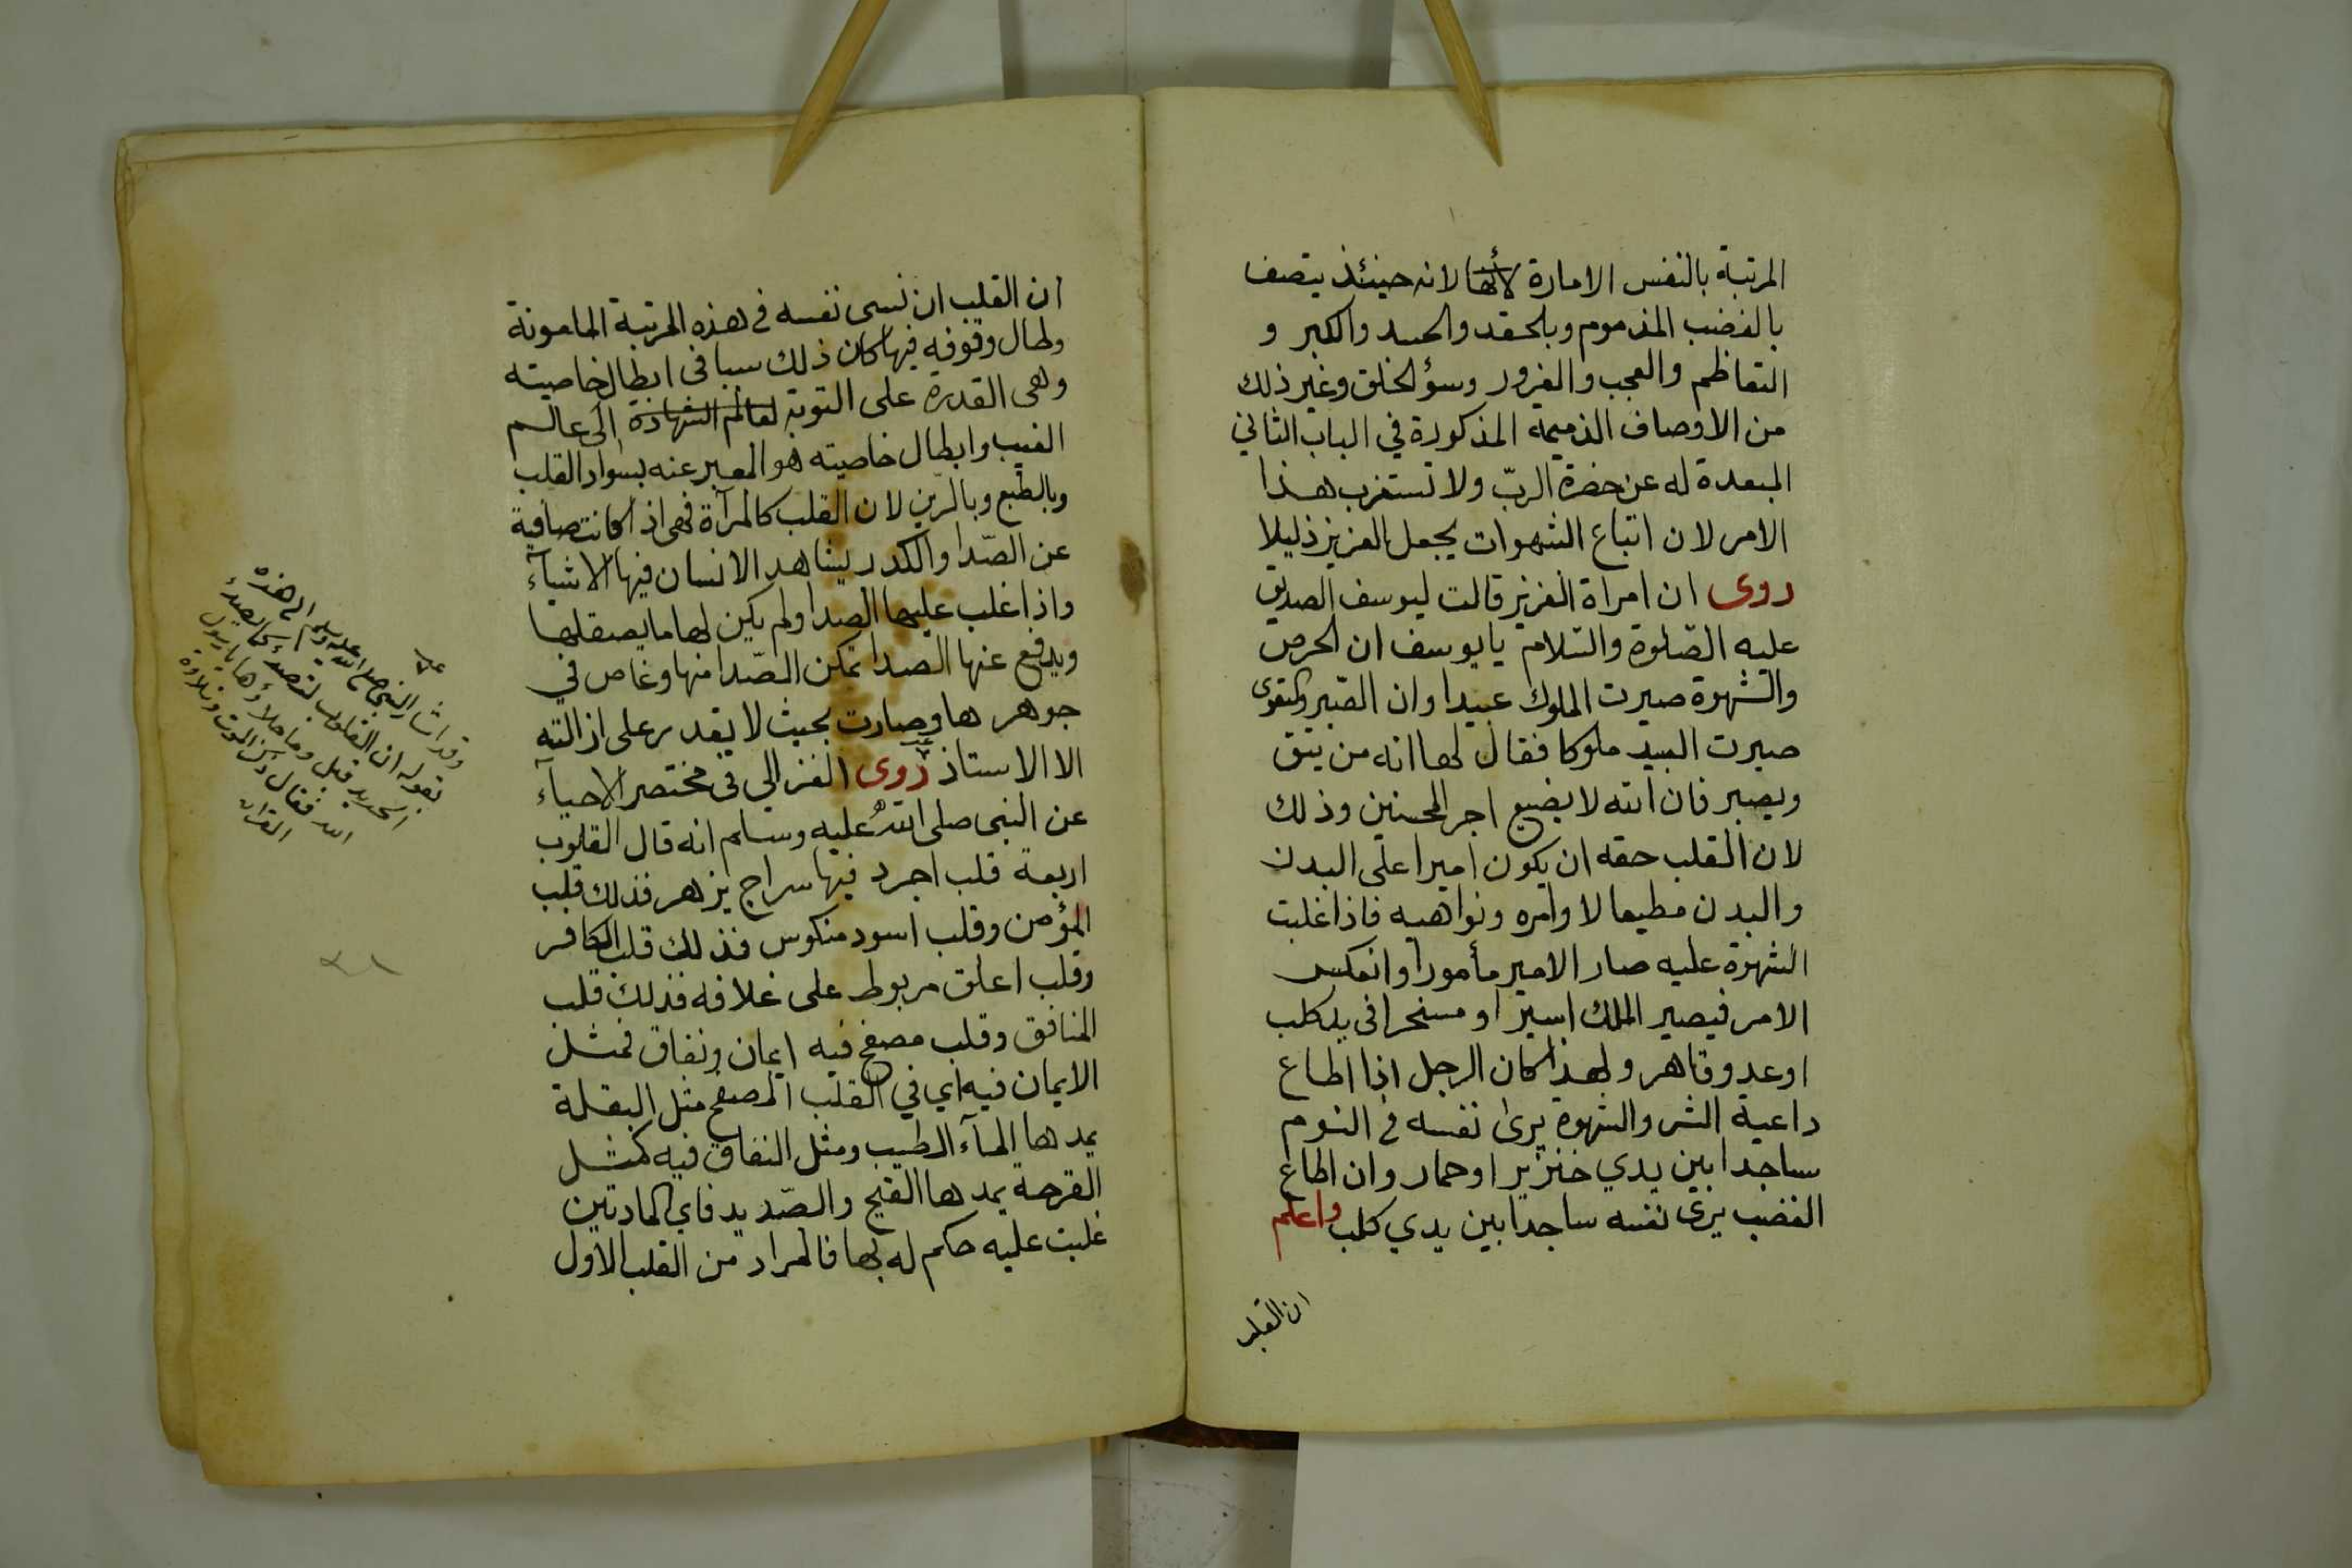 المرتبة بالنفس الامارة لأنها لانه حينئذ يتصف
بالغضب المذموم وبلحقد والحسد والكبر و
التعاظم والعجب والغرور وسؤ لخلق وغير ذلك
من الاوصاف الذميمة المذكورة في الباب الثاني
المبعدة له عن حضرة الربّ ولا تستغرب هذا
الامر لان اتباع الشهوات يجعل العزيز ذليلا
روى ان امراة العزيز قالت ليوسف الصديق
عليه الصّلوة والسّلام يا يوسف ان الحرص
والشهوة صيرت الملوك عبيدا وان الصّبر والتقوى
صيرت العبيد ملوكا فقال لها انه من يتق
ويصبر فان الله لا يضيع اجر المحسنين وذلك
لان القلب حقه ان يكون اميرا على البدن
والبدن مطيعا لاوامره ونواهيه فاذا غلبت
الشهوة عليه صار الامير مأمورا وانعكس
الامر فيصير الملك اسيرا ومسخرا في يد كلب
او عدو قاهر ولهذا كان الرجل اذا اطاع
داعية الشر والشهوة يرى نفسه في النوم
ساجدا بين يدي خنزير او حمار وان اطاع
الغضب يرى نفسه ساجدا بين يدي كلب واعلم
ان القلب
ان القلب ان نسى نفسه في هذه المرتبة
وطال وقوفه فيها كان ذلك سببا في ابطال خاصيته
وهى القدرة على التوبة لعالم الشهادة الى عالم
الغيب وابطال خاصيته هو المعبر عنه بسواد القلب
وبالطبع وبالرين لان القلب كالمرآة فهى اذا كانت صافية
عن الصّدا والكدر يشاهد الانسان فيها الاشيآء
واذا غلب عليها الصدا ولم يكن لها ما يصقلها
ويدفع عنها الصدا تمكن الصّدا منها وغاص في
جوهرها وصارت بحيث لا يقدر على ازالته
الا الاستاذ روى الغزالي في مختصر الاحيآء
عن النبى صلى الله عليه وسلم انه قال القلوب
اربعة قلب اجرد فيها سراج يزهر فذلك قلب
المؤمن وقلب اسود منكوس فذلك قلب الكافر
وقلب اغلق مربوط على غلافه فذلك قلب
المنافق وقلب مصفح فيه ايمان ونفاق فمثل
الايمان فيه اي في القلب المصفح مثل البقلة
يمدها المآء الطيب ومثل النفاق فيه كمثل
القرحة يمدها القيح والصّديد فاي المادتين
غلبت عليه حكم له بها فالمراد من القلب الاول
وقد اشار النبى صلى الله عليه وسلم الى هذه
بقوله ان القلوب لتصدء كما يصدء
الحديد قيل وما جلاؤها يا رسول
الله فقال ذكر الموت وتلاوة
القران